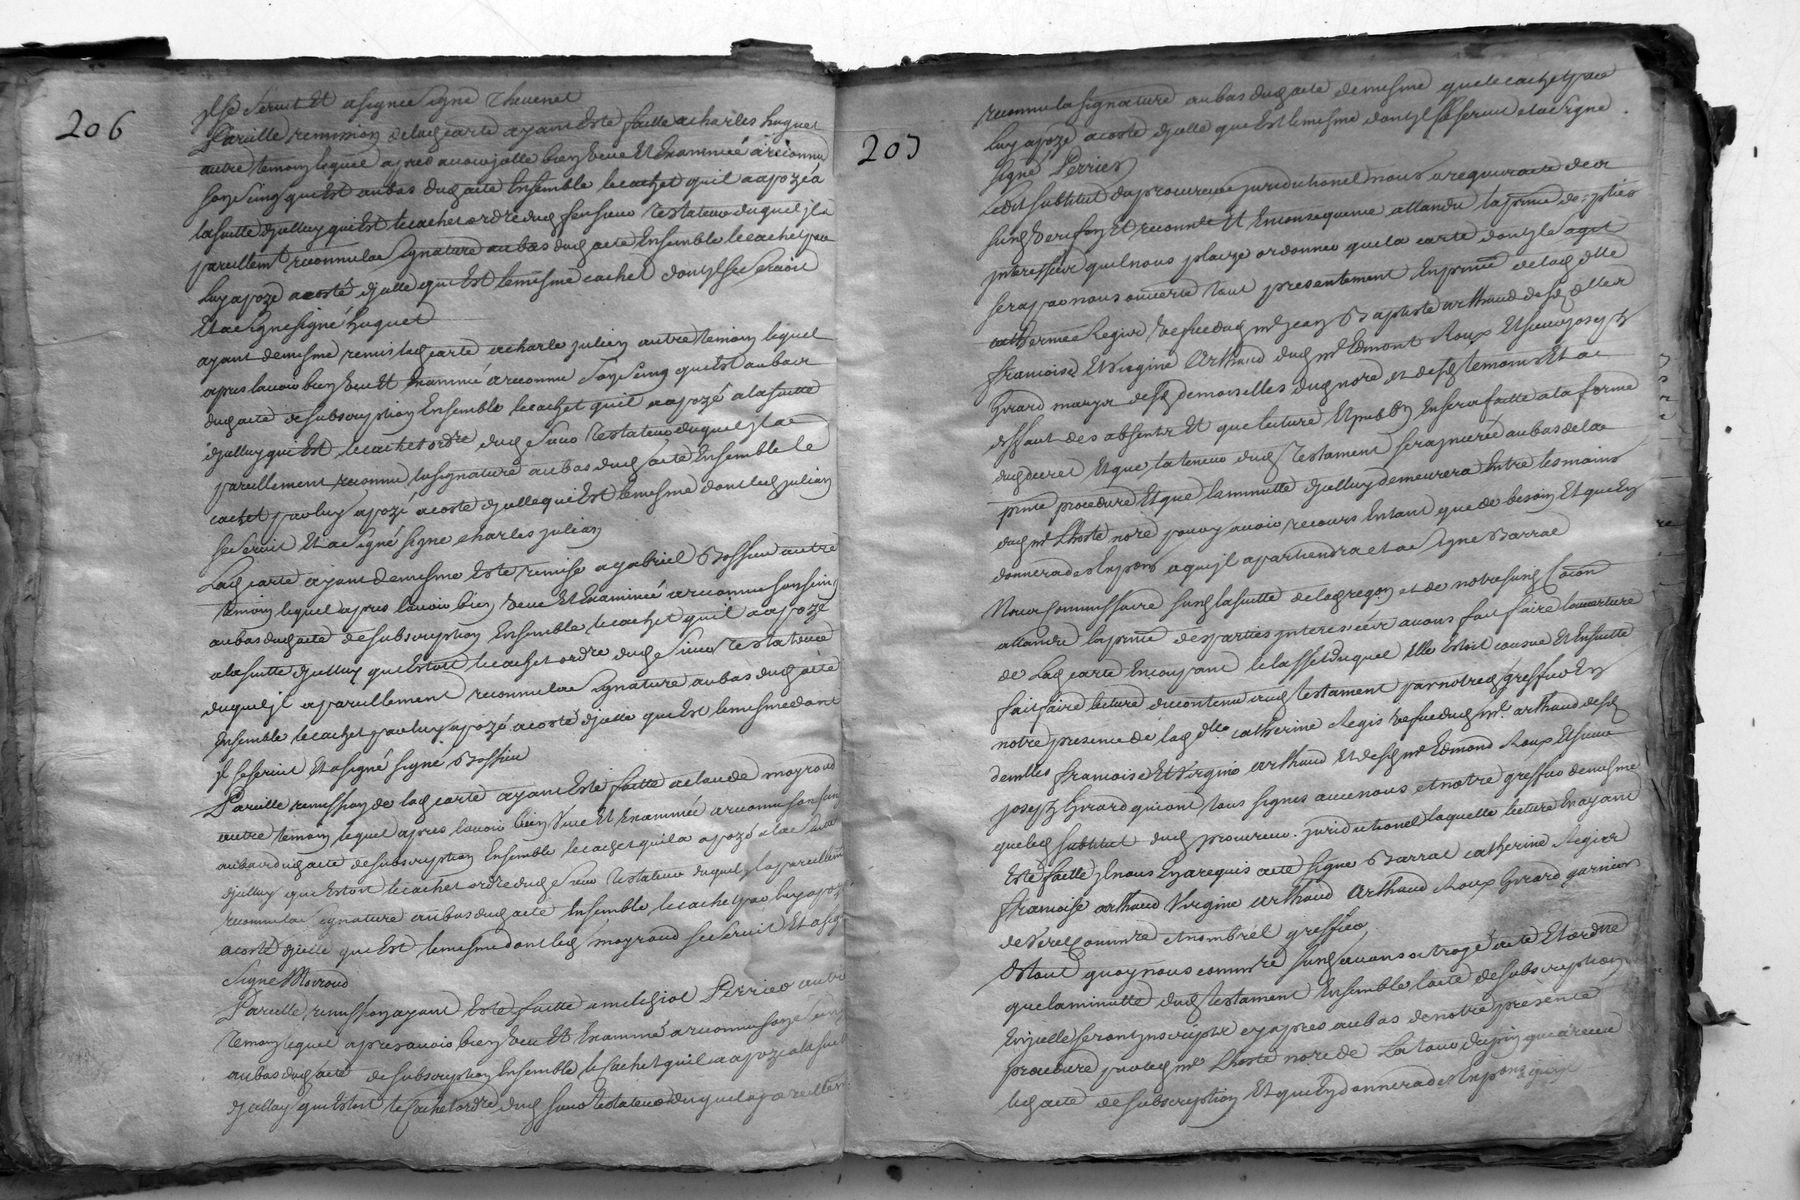 206
Il se servit et a signé signé Thevenet
Pareille remission de lad carte ayant este faitte a charles huguet
autre temoin lequel apres avoir jcelle bien veue et examinée a reconnu
son seing qui est au bas dud acte Ensemble le cachet quil a apozé a
la suitte djcelluy qui Est le cachet ordre dud feu sieur Testateur duquel jl a
pareillemt reconnu la signature au bas dud acte Ensemble le cachet par
luy apozé a costé djcelle qui Est le mesme cachet dont jl se servit
Et a signe signé huguet
ayant de mesme remis lad carte a charle julien autre temoin lequel
apres lavoir bien veue Et Examiné a reconnu son seing qui Est au bas
dud acte de subscription Ensemble le cachet quil a apozé a la suitte
djcelluy qui Est le cachet ordre dud sieur Testateur duquel jl a
pareillement reconnu la signature au bas dud acte Ensemble le
cachet par luy apozé a costé djcelle qui Est le mesme dont led julien
se servit Et a signé signe charles julien
Lad carte ayant de mesme Esté remise a gabriel Bossieu autre
temoin lequel apres lavoir bien veue Et Examinée a reconnu son seing
au bas dud acte de subscription Ensemble le cachet quil a apozé
a la suitte djcelluy qui Estoit le cachet ordre dud sieur Testateur
duquel jl a pareillement reconnu la signature au bas dud acte
Ensemble le cachet par luy apozé a costé djcelle qui Est le mesme dont
jl se servit Et a signé signé Bossieu
Pareille remission de lad carte ayant Esté faitte a claude moyroud
autre temoin lequel apres lavoir bien veue Et Examinée a reconnu son seing
au bas dud acte de subscription Ensemble le cachet quil a apozé a la suitte
djcelluy qui Estoit le cachet ordre dud sieur Testateur duquel jl a pareillemt
reconnu la signature au bas dud acte Ensemble le cachet par luy apozé
a costé djcelle qui Est le mesme dont led moyroud se servit Et a signé
signe Moiroud
Pareille remission ayant Esté faitte a melchior Perrier autre
Temoin lequel apres avoir bien veue Et Examiné a reconnu son seing
au bas dud acte de subscription Ensemble le cachet quil a apozé a la suitte
djcelluy qui Estoit le cachet ordre dud sieur Testateur duquel a pareillemt
207
reconnu la signature au bas dud acte de mesme que le cachet par
luy apozé a costé djcelle que Est le mesme dont jl se servit et a signé
signé Perrier
Led substitut du procureur juridictionel nous a requis acte de la
susd verifon Et reconnce Et En consequence attandu la pnce des pties
jnteressées quil nous plaize ordonner que la carte dont jl sagit
sera par nous ouverte tout presentement En presence de lad dlle
catherine Regis vesve dud mr jean Baptiste arthaud desd dlles
francoise Et virgine Arthaud dud mr Edmont Roux Et sieur joseph
Girard marys desd demoiselles dud nore et desd temoins Et a
deffaut des absents Et que lecture Et pubbon En sera faitte a la forme
dud decret Et que la teneur dud Testament sera jnseré au bas de la
pnte procedure Et que la minutte djcelluy demeurera Entre les mains
dud mr Lhoste nore pour y avoir recours En tant que de besoin Et que En
donnera des Exp̄ons a qui jl apartiendra et a signé Barral
Nous commissaire susd la suitte de lad reqon et de notre susd conon
attandu la pnce des parties jnteressées avons fait faire louverture
de Lad carte En coupant le lasset duquel Elle Estoit cousue Et Ensuitte
fait faire lecture du contenu aud testament par notre greffier En
notre presence de lad dlle catherine Regis vesve dud mr arthaud desd
demlles francoise Et virgine arthaud Et desd mr Edmond Roux Et sieur
joseph Girard qui ont tous signes avec nous et notre greffier de mesme
que led substitut dud procureur juridictionel laquelle lecture En ayant
Esté faitte jl nous En a requis acte signé Barral catherine Regis
francoise arthaud virgine arthaud Arthaud Roux Girard garnier
greffier
De tout quoy nous commre susd avons octroyé acte Et ordné
que la minutte dud testament Ensemble lacte de subscription
En jcelle seront jnscripts cy apres au bas de notre presente
procedure par led mr Lhoste nore de La tour du pin que a receu
led acte de subscription Et que En donnera des Exp̄ons a qui jl